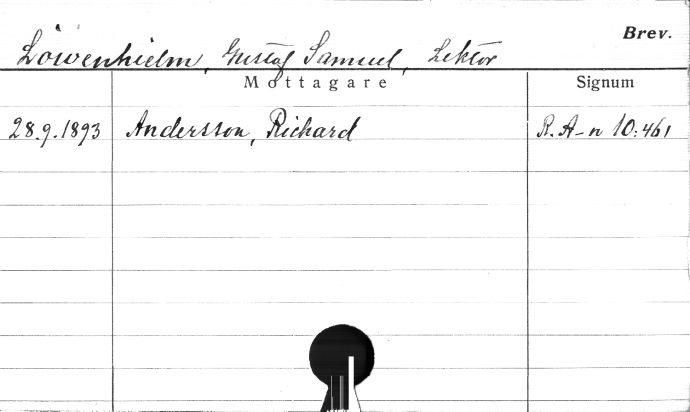 Brev.
Löwenhielm, Gustaf Samuel, Lektor
Mottagare Signum
28.9.1893 Andersson, Richard R. A-n 10:461